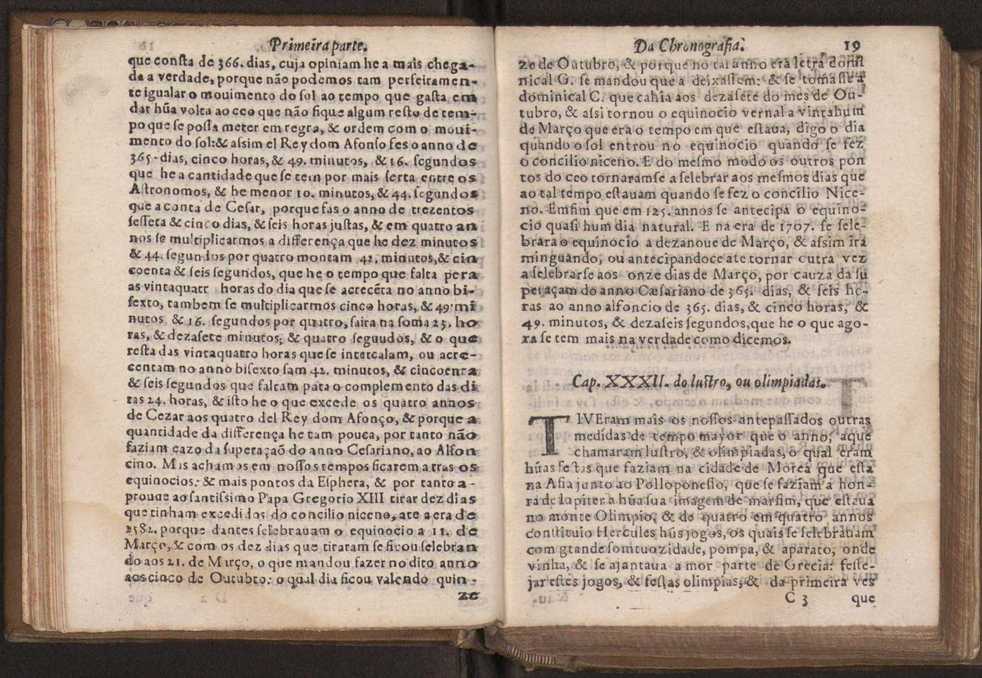 Primeira parte.
que consta de 366. dias, cuja opiniam he a mais chega-
da a verdade, porque não podemos tam perfeiramen-
te igualar o mouimento do sol ao tempo que gasta em
dat hũa volta ao ceo que não fique algum resto de tem-
po que se possa meter em regra, & ordem com o moui-
mento do sol: & assim el Rey dom Afonso fes o anno de
365. dias, cinco horas, & 49. minutos, & 16. segundos
que he a cantidade que se tem por mais serta entre os
Astronomos, & he menor 10. minutos, & 44. segundos
que a conta de Cesar, porque fas o anno de trezentos
sesseta & cinco dias, & seis horas justas, & em quatro an
nos se multiplicarmos a differença que he dez minutos
& 44. segundos por quatro montam 42. minutos, & cin
coenta & seis segundos, que he o tempo que falta pera
as vintaquatr horas do dia que se acrecẽta no anno bi-
sexto, tambem se multiplicarmos cinco horas, & 49. mi
nutos, & 16. segundos por quatro, saira na soma 23. ho
ras, & dezasete minutos, & quatro segundos, & o que
resta das vintaquatro horas que se intercalam, ou acre-
centam no anno bisexto sam 42. minutos, & cincoenta
& seis segundos que faltam pata o complemento das di
tas 24. horas, & isto he o que excede os quatro annos
de Cezar aos quatro del Rey dom Afonço, & porque a
quantidade da differença he tam pouca, por tanto não
faziam cazo da superaçaõ do anno Cesariano, ao Alfon
cino. Mas achamos em nossos tempos ficarem a tras os
equinocios: & mais pontos da Esphera, & por tanto a-
prouue ao santissimo Papa Gregorio XIII tirar dez dias
que tinham excedidos do concilio niceno, ate a era de
1582. porque dantes selebrauam o equinocio a 11. de
Março, & com os dez dias que tiraram se ficou selebran
do aos 21. de Março, o que mandou fazer no dito anno
aos cinco de Outubro: o qual dia ficou valendo quin-
ze
Da Chronografia. 19
ze de Outubro, & porque no tal anno era letra domi
nical G. se mandou que a deixassem: & se tomasse a
dominical C. que cahia aos dezasete do mes de Ou-
tubro, & assi tornou o equinocio vernal a vintahum
de Março que era o tempo em que estaua, digo o dia
quando o sol entrou no equinocio quando se fez
o concilio niceno. E do mesmo modo os outros pon
tos do ceo tornaramse a selebrar aos mesmos dias que
ao tal tempo estauam quando se fez o concilio Nice-
no. Emfim que em 125. annos se antecipa o equino-
cio quasi hum dia natural. E na era de 1707. se sele-
brara o equinocio a dezanoue de Março, & assim irà
minguando, ou antecipandoce ate tornar outra vez
a selebrarse aos onze dias de Março, por cauza da su
peraçam do anno Cæsariano de 365. dias, & seis ho-
ras ao anno alfoncio de 365. dias, & cinco horas, &
49. minutos, & dezaseis segundos, que he o que ago-
ra se tem mais na verdade como dicemos.
Cap. XXXII. do lustro, ou olimpiadas.
TIVEram mais os nossos antepassados outras
medidas de tempo mayor que o anno, aque
chamaram lustro, & olimpiadas, o qual eram
hũas festas que faziam na cidade de Morea que està
na Asia junto ao Polloponesso, que se faziam a hon-
ra de Iopiter à hũa sua imagem de marfim, que estaua
no monte Olimpio, & de quatro em quatro annos
constituio Hercules hũs jogos, os quais se selebrauam
com grande somtuozidade, pompa, & aparato, onde
vinha, & se ajantaua a mor parte de Grecia: feste-
jar estes jogos, & festas olimpias, & da primeira ves
C 3 que